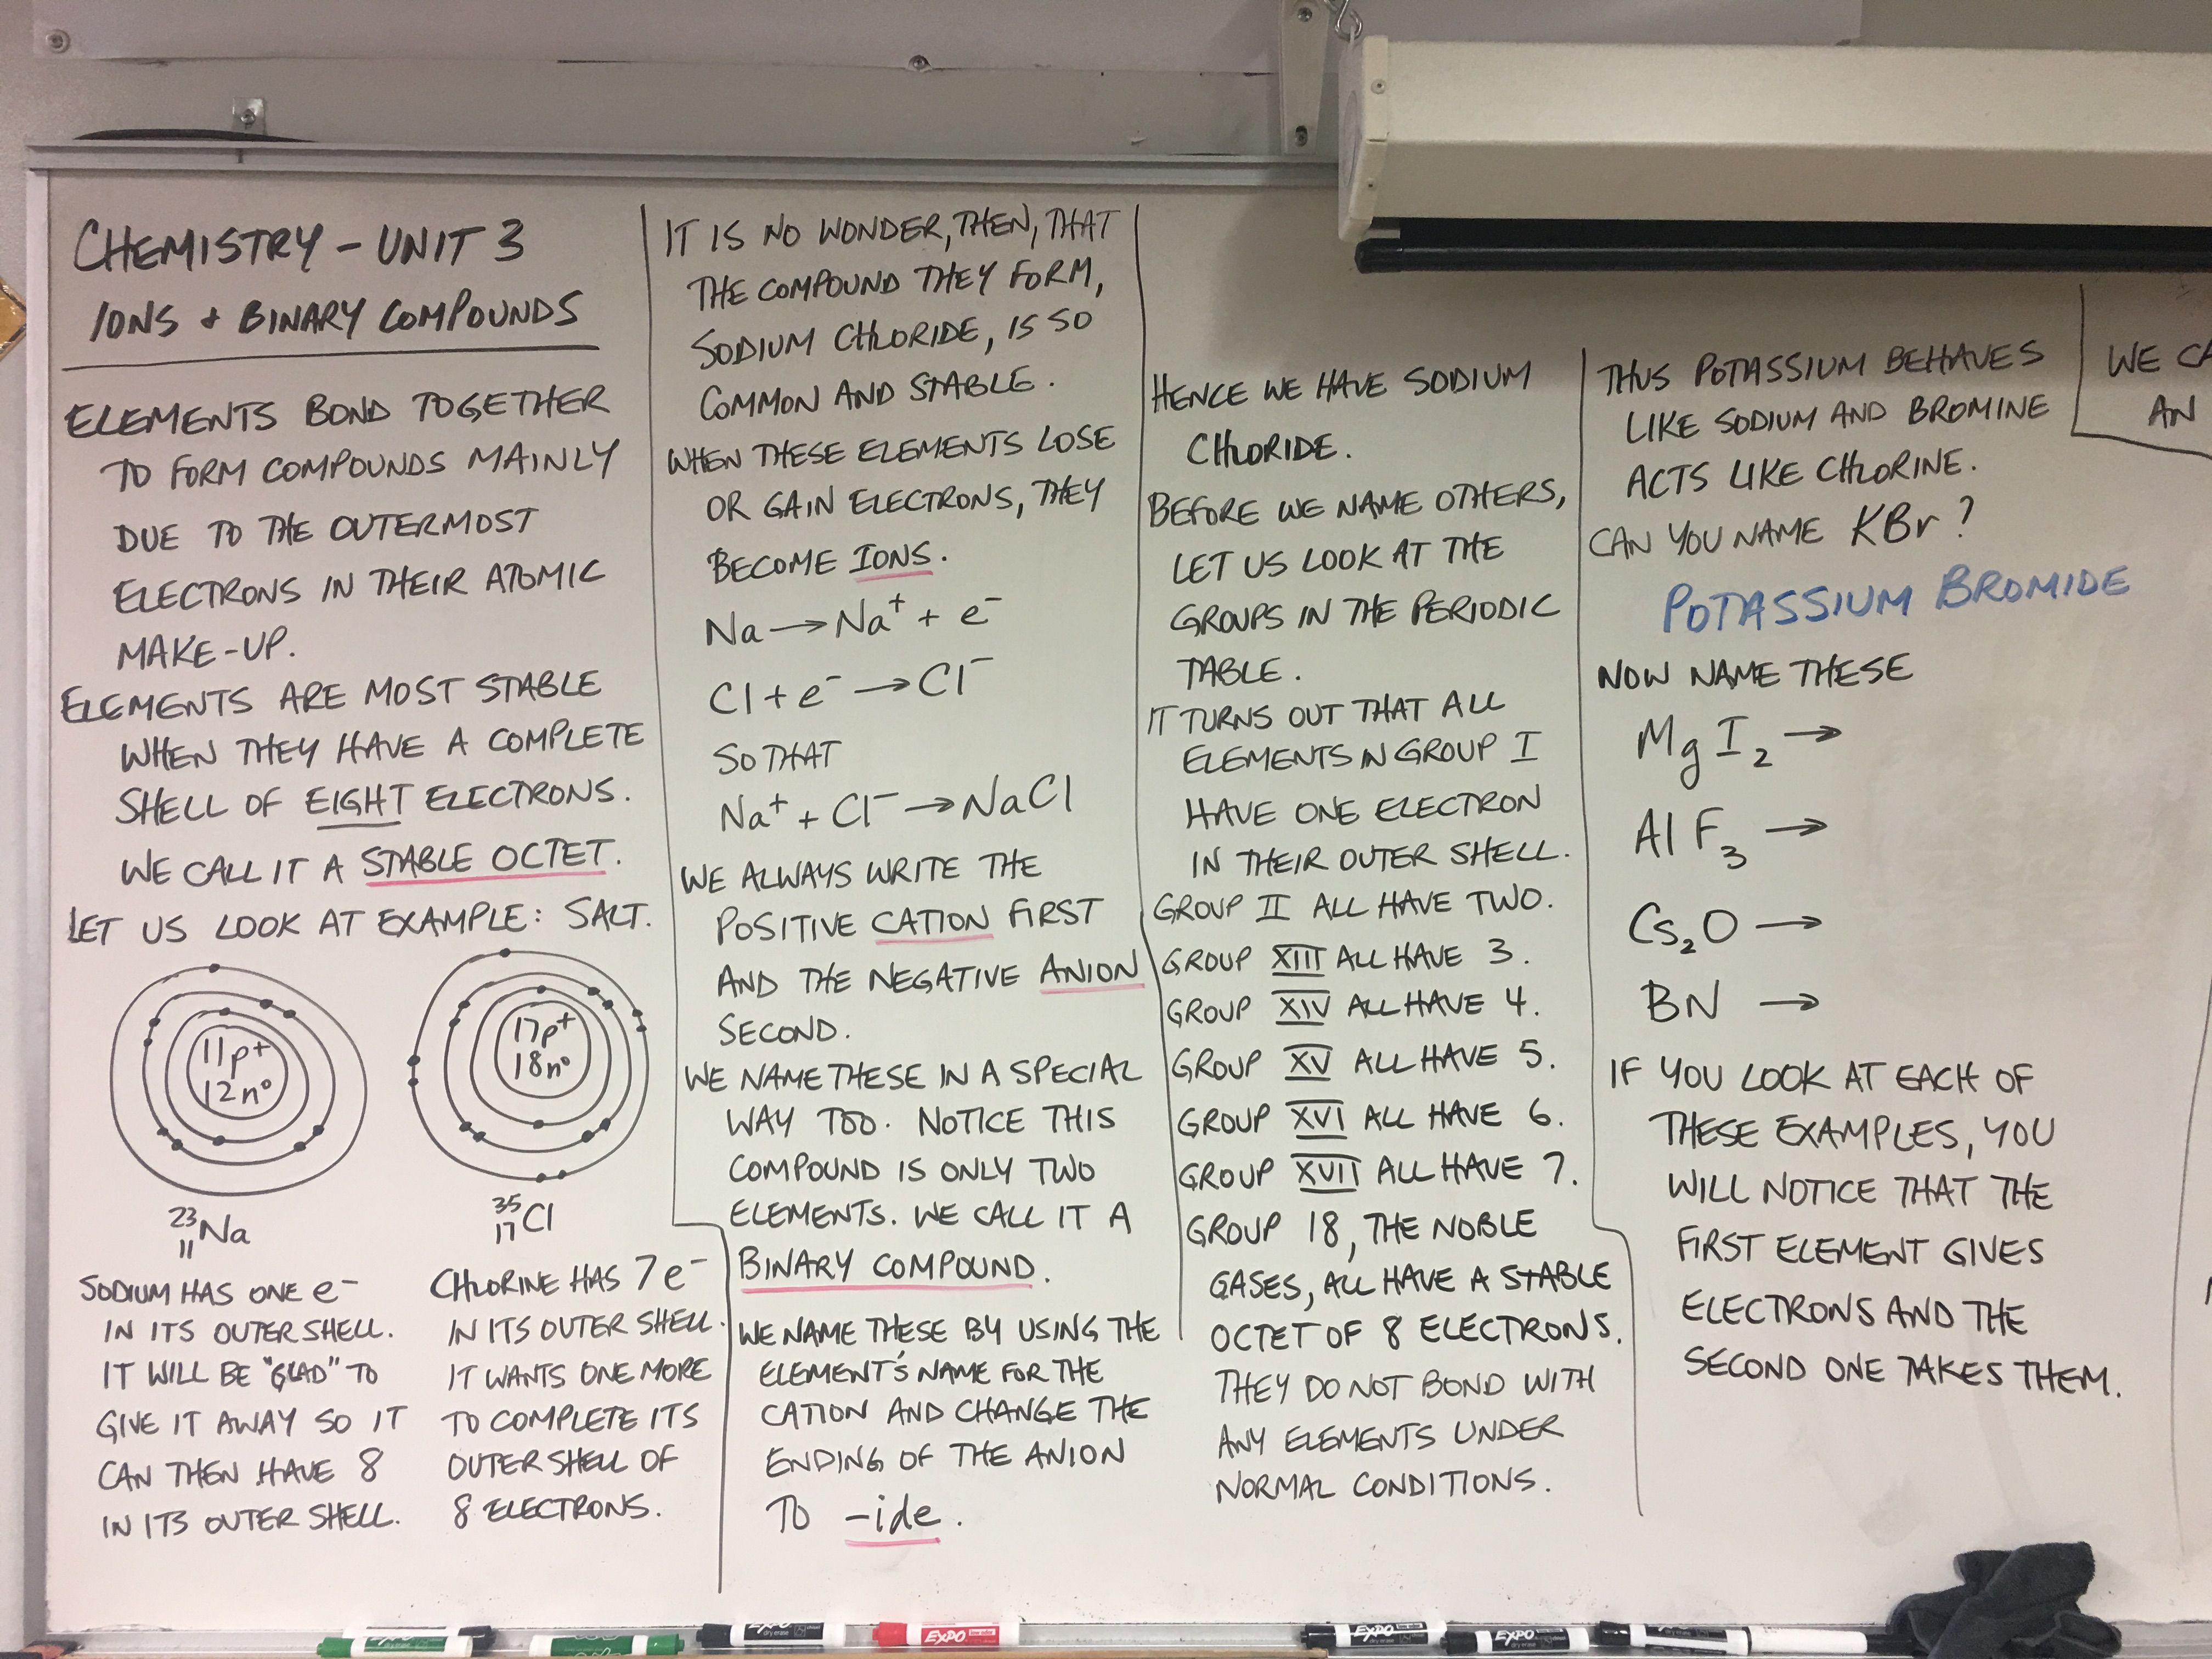 CHEMISTRY - UNIT 3
IONS + BINARY COMPOUNDS
ELEMENTS BOND TOGETHER
TO FORM COMPOUNDS MAINLY
DUE TO THE OUTERMOST
ELECTRONS IN THEIR ATOMIC
MAKE-UP.
ELEMENTS ARE MOST STABLE
WHEN THEY HAVE A COMPLETE
SHELL OF EIGHT ELECTRONS.
WE CALL IT A STABLE OCTET.
LET US LOOK AT EXAMPLE: SALT.
11p⁺
12n⁰
²³₁₁Na
SODIUM HAS ONE e⁻
IN ITS OUTER SHELL.
IT WILL BE "GLAD" TO
GIVE IT AWAY SO IT
CAN THEN HAVE 8
IN ITS OUTER SHELL.
17p⁺
18n⁰
³⁵₁₇Cl
CHLORINE HAS 7e⁻
IN ITS OUTER SHELL.
IT WANTS ONE MORE
TO COMPLETE ITS
OUTER SHELL OF
8 ELECTRONS.
IT IS NO WONDER, THEN, THAT
THE COMPOUND THEY FORM,
SODIUM CHLORIDE, IS SO
COMMON AND STABLE.
WHEN THESE ELEMENTS LOSE
OR GAIN ELECTRONS, THEY
BECOME IONS.
Na → Na⁺ + e⁻
Cl + e⁻ → Cl⁻
SO THAT
Na⁺ + Cl⁻ → NaCl
WE ALWAYS WRITE THE
POSITIVE CATION FIRST
AND THE NEGATIVE ANION
SECOND.
WE NAME THESE IN A SPECIAL
WAY TOO. NOTICE THIS
COMPOUND IS ONLY TWO
ELEMENTS. WE CALL IT A
BINARY COMPOUND.
WE NAME THESE BY USING THE
ELEMENT'S NAME FOR THE
CATION AND CHANGE THE
ENDING OF THE ANION
TO -ide.
HENCE WE HAVE SODIUM
CHLORIDE.
BEFORE WE NAME OTHERS,
LET US LOOK AT THE
GROUPS IN THE PERIODIC
TABLE.
IT TURNS OUT THAT ALL
ELEMENTS IN GROUP I
HAVE ONE ELECTRON
IN THEIR OUTER SHELL.
GROUP II ALL HAVE TWO.
GROUP XIII ALL HAVE 3.
GROUP XIV ALL HAVE 4.
GROUP XV ALL HAVE 5.
GROUP XVI ALL HAVE 6.
GROUP XVII ALL HAVE 7.
GROUP 18, THE NOBLE
GASES, ALL HAVE A STABLE
OCTET OF 8 ELECTRONS.
THEY DO NOT BOND WITH
ANY ELEMENTS UNDER
NORMAL CONDITIONS.
THUS POTASSIUM BEHAVES
LIKE SODIUM AND BROMINE
ACTS LIKE CHLORINE.
CAN YOU NAME KBr?
POTASSIUM BROMIDE
NOW NAME THESE
MgI₂ →
AlF₃ →
Cs₂O →
BN →
IF YOU LOOK AT EACH OF
THESE EXAMPLES, YOU
WILL NOTICE THAT THE
FIRST ELEMENT GIVES
ELECTRONS AND THE
SECOND ONE TAKES THEM.
WE CA
AN
EXPO
EXPO
EXPO
EXPO
EXPO